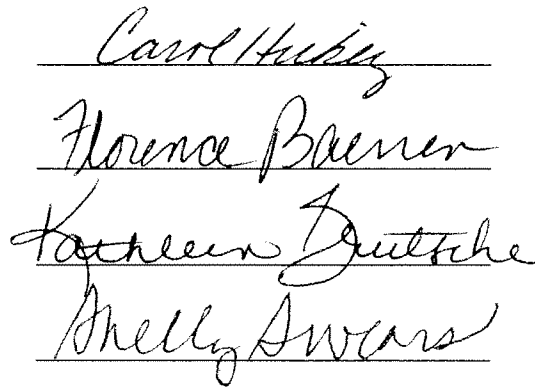 Carol Hickey
Florence Baerren
Kathleen Deutsche
Shelly Swears